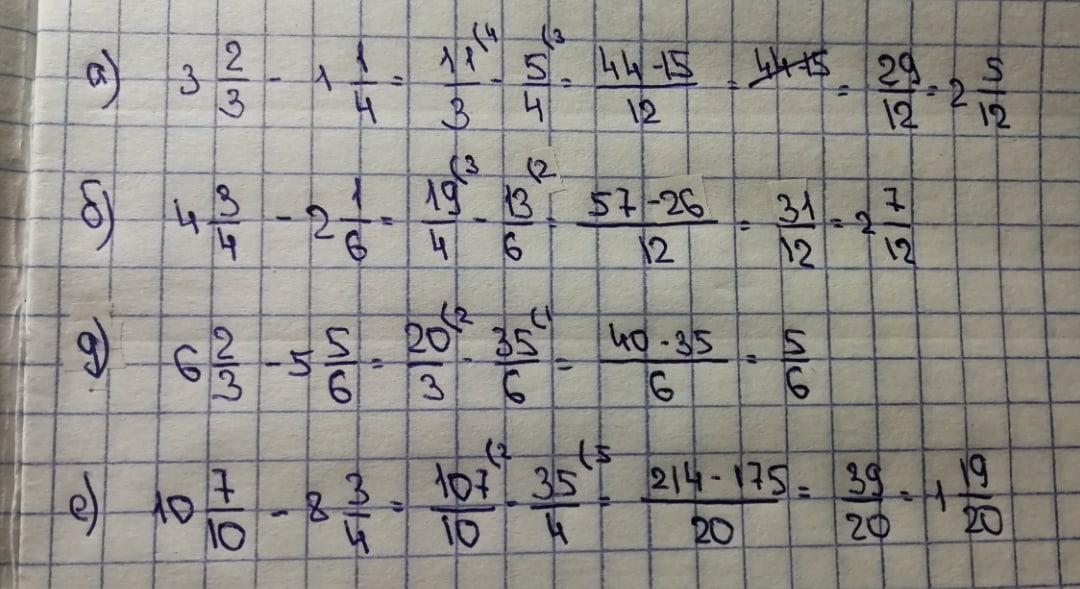 а) 3 2/3 - 1 1/4 = 11/3 (4 - 5/4 (3 = 44-15/12 = 44-15 = 29/12 = 2 5/12
б) 4 3/4 - 2 1/6 = 19/4 (3 - 13/6 (2 = 57-26/12 = 31/12 = 2 7/12
д) 6 2/3 - 5 5/6 = 20/3 (2 - 35/6 (1 = 40-35/6 = 5/6
е) 10 7/10 - 8 3/4 = 107/10 (2 - 35/4 (5 = 214-175/20 = 39/20 = 1 19/20